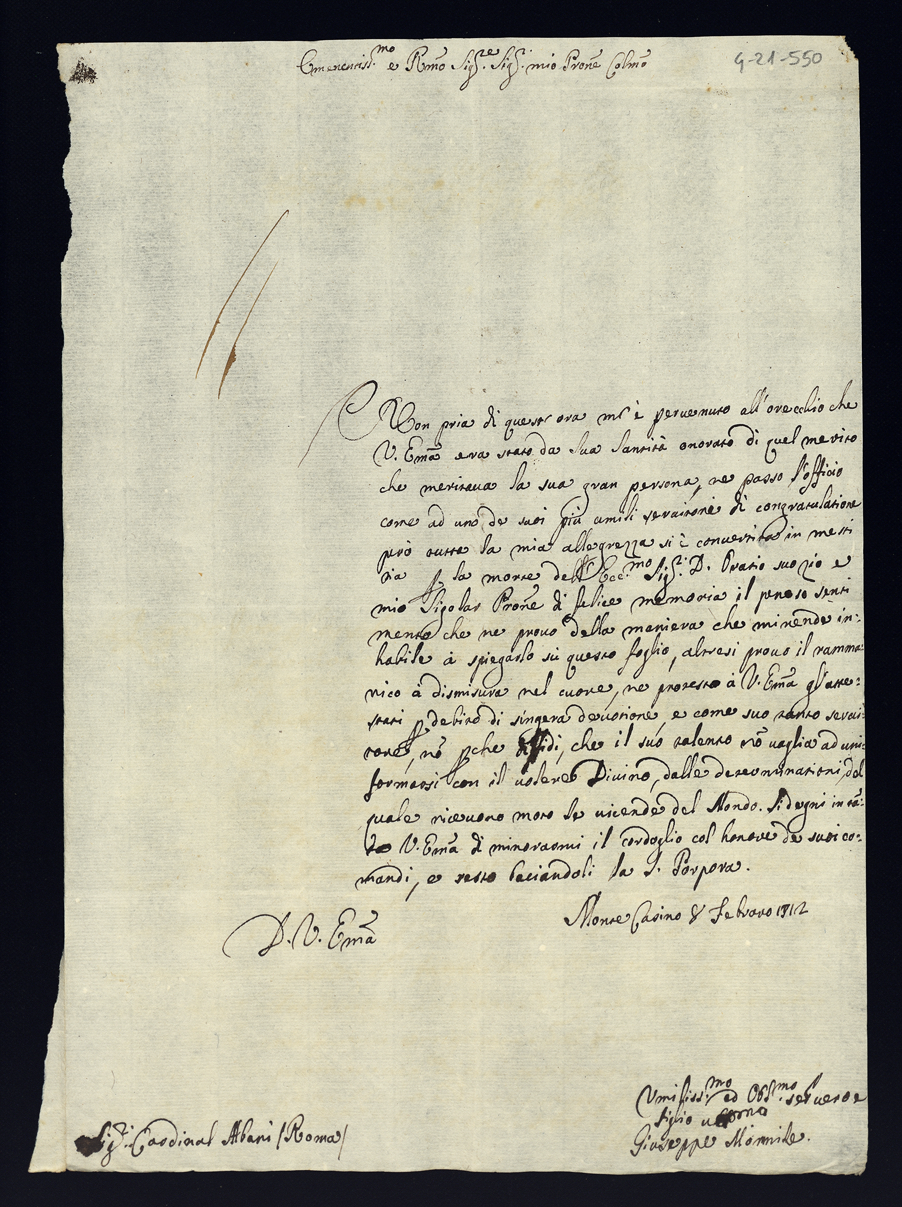 Emenentiss.mo e Rmo Sig.re Sig.r mio Prone Colmo
9-21-550
Non pria di quest'ora m'è pervenuto all'orecchio che
V. Emã era stato da Sua Santità onorato di quel merito
che meritava la sua gran persona, ne passo l'officio
come ad uno de suoi più umili servitori di congratulatione
però tutta la mia allegrezza si è convertita in mesti
tia p la morte dell'Ecc.mo Sig.r D. Oratio suo zio e
mio Sigolar Prone di felice memoria il penoso senti
mento che ne provo della maniera che mi rende in:
habile à spiegarlo sù questo foglio, altresi provo il ramma
rico à dismisura nel cuore, ne protesto à V. Emã gl'atte:
stati p debito di singera devotione, e come suo tanto servi:
tore, nõ pche diffidi, che il suo talento nõ vaglia ad uni:
formarsi con il volere Divino, dalle determinationi, dal
quale ricevono moto le vicende del Mondo. Si degni in tã:
to V. Emã di minorarmi il cordoglio col honore de suoi co:
mandi, e resto baciandoli la S. Porpora.
Monte Casino 8 Febraro 1712
D. V. Emã
Umilissi.mo ed Obl.mo serv vero e
figlio
Giuseppe Mormile.
Sig.r Cardinal Albani (Roma)